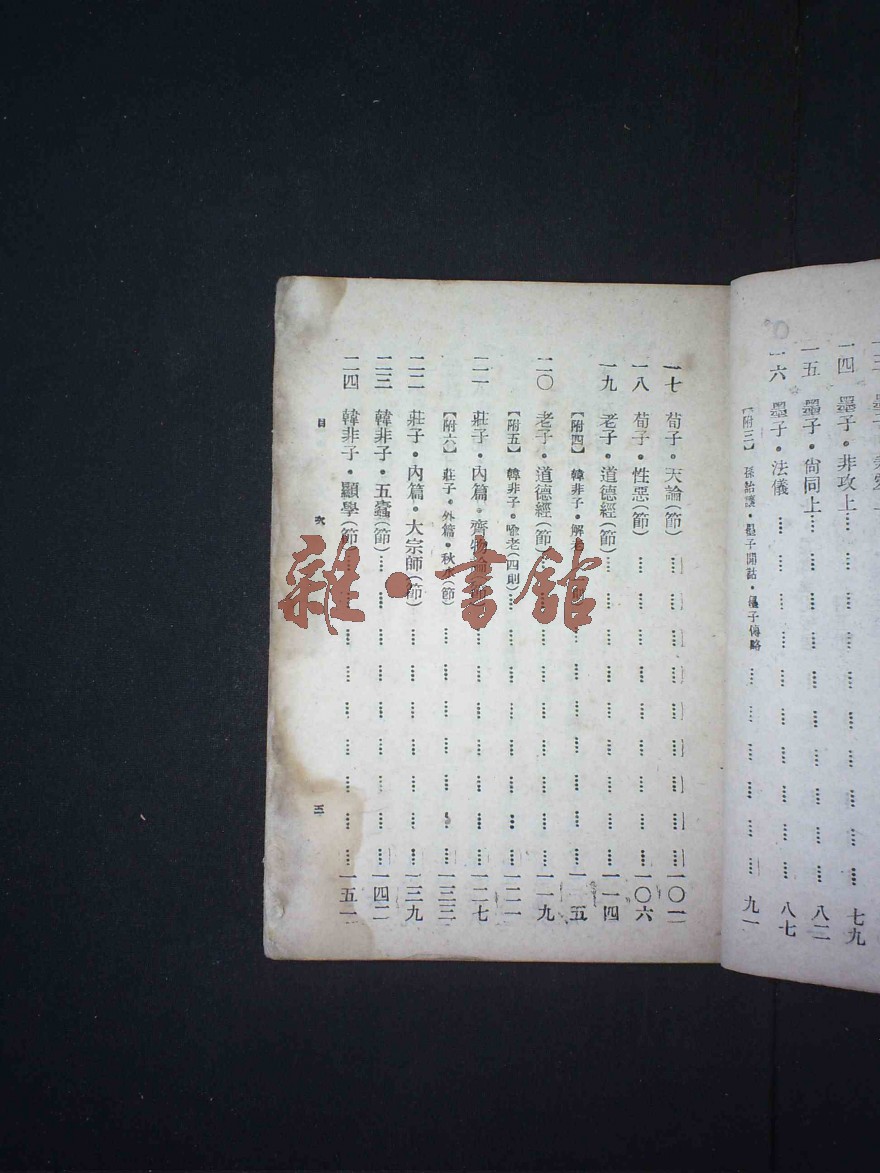 一四 墨子·非攻上 七九
一五 墨子·尙同上 八二
一六 墨子·法儀 八七
【附三】 孫詒讓·墨子閒詁·墨子傳略 九一
一七 荀子·天論(節) 一〇一
一八 荀子·性惡(節) 一〇六
一九 老子·道德經(節) 一一四
【附四】 韓非子·解老 一一五
二〇 老子·道德經(節) 一一九
【附五】 韓非子·喩老(四則) 一二一
二一 莊子·內篇·齊物論(節) 一二七
【附六】 莊子·外篇·秋水(節) 一三三
二二 莊子·內篇·大宗師(節) 一三九
二三 韓非子·五蠹(節) 一四二
二四 韓非子·顯學(節) 一五一
目 次 三
雜·書館